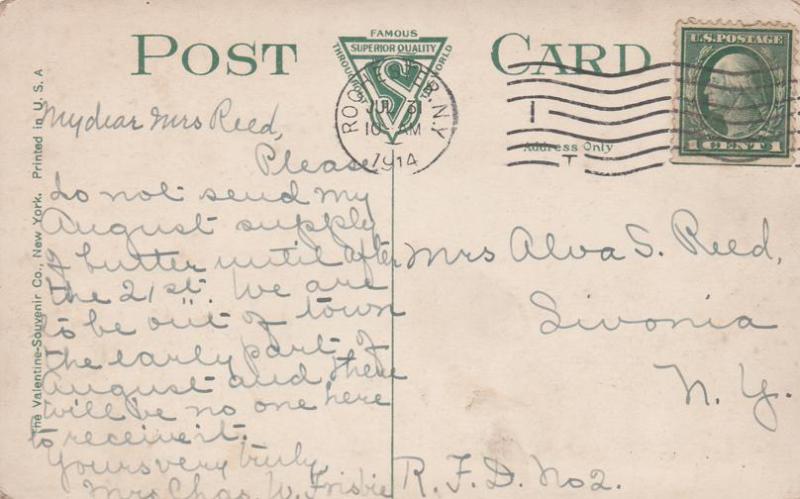 POST CARD
FAMOUS
SUPERIOR QUALITY
THROUGHOUT THE WORLD
VS
ROCHESTER, N.Y.
JUL 31
10 - AM
1914
1
T
U.S. POSTAGE
1 CENT 1
Address Only
The Valentine-Souvenir Co., New York. Printed in U. S. A
My dear Mrs Reed,
Please
do not send my
August supply
of butter until after
the 21st. We are
to be out of town
the early part of
August and there
will be no one here
to receive it.
Yours very truly,
Mrs Chas. W. Frisbie
Mrs Alva S. Reed,
Livonia
N. Y.
R. F. D. No 2.